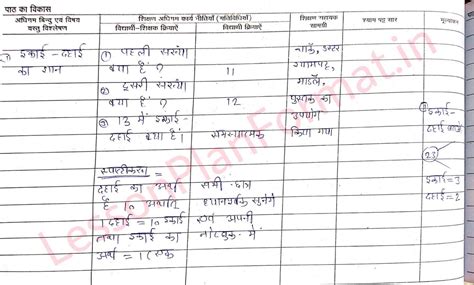 पाठ का विकास
अधिगम बिन्दु एवं विषय वस्तु विश्लेषण
शिक्षण अधिगम कार्य नीतियाँ (गतिविधियाँ)
शिक्षक क्रियाऐं
विद्यार्थी क्रियाऐं
शिक्षण सहायक सामग्री
श्याम पट्ट सार
मूल्यांकन
इकाई - दहाई
का ज्ञान
① पहली संख्या
क्या है ?
11
② दूसरी संख्या
क्या है ?
12
③ 13 में इकाई -
दहाई क्या है।
समस्यात्मक
चार्ट, डस्टर
श्यामपट्ट,
मॉडल,
पुस्तक का
उपयोग
किया गया
स्पष्टीकरण =
दहाई का अर्थ
है 10 अर्थात
1 दहाई = 10 इकाई
तथा इकाई का
अर्थ = 1 (एक
सभी छात्र
ध्यानपूर्वक सुनेंगे
एवं अपनी
नोटबुक में
इकाई -
दहाई
23
इकाई = 3
दहाई = 2
LessonPlanFormat.in